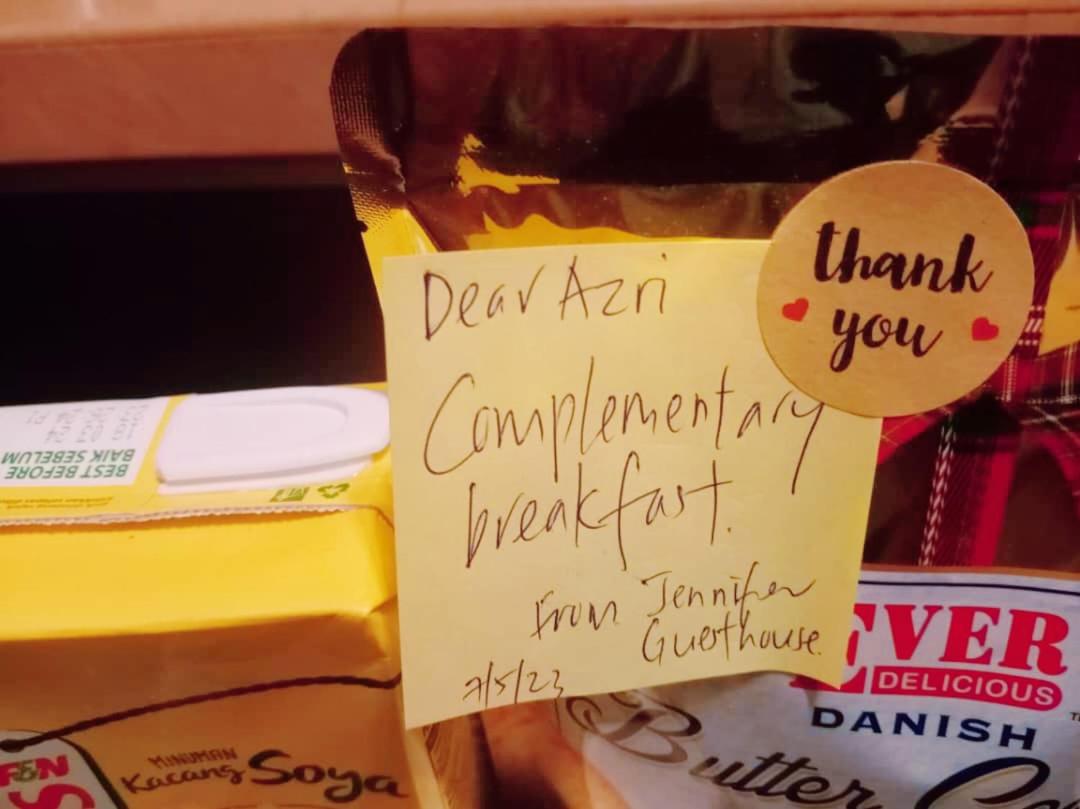 Dear Azri
Complementary
breakfast.
From Jennifer
Guesthouse.
7/5/23
thank
you
BEST BEFORE
BAIK SEBELUM
F&N
MINUMAN
Kacang Soya
EVER
DELICIOUS
DANISH
Butter